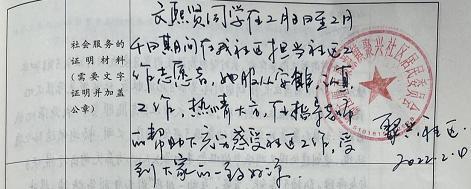 社会服务的
证明材料
(需要文字
证明并加盖
公章)
文熙贤同学在2月8日至2月
十日期间在我社区担当社区工
作志愿者,她服从安排,认真
工作,热情大方,在指导老师
的帮助下充分感受社区工作,受
到大家的一致好评.
聚兴社区居民委员会
聚兴社区
2022.2.10